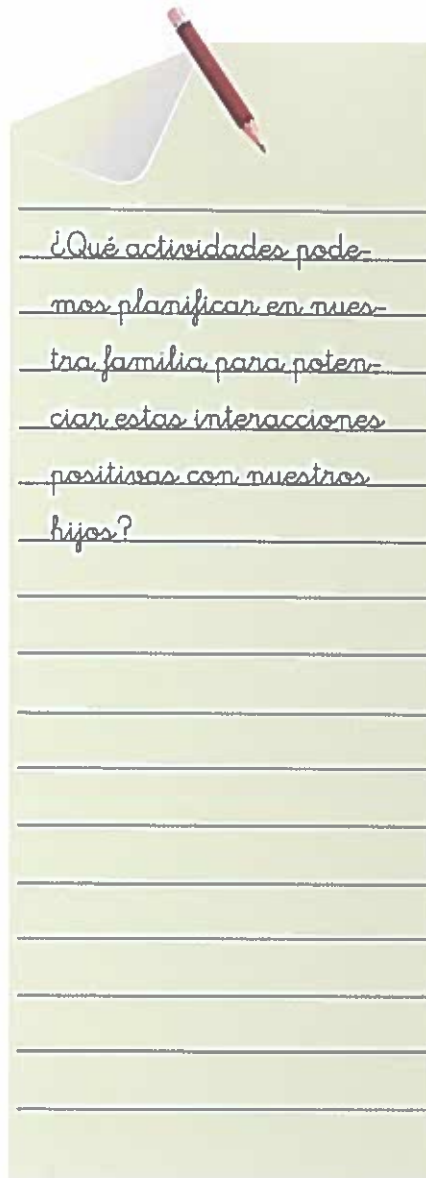 ¿Qué actividades pode-
mos planificar en nues-
tra familia para poten-
ciar estas interacciones
positivas con nuestros
hijos?